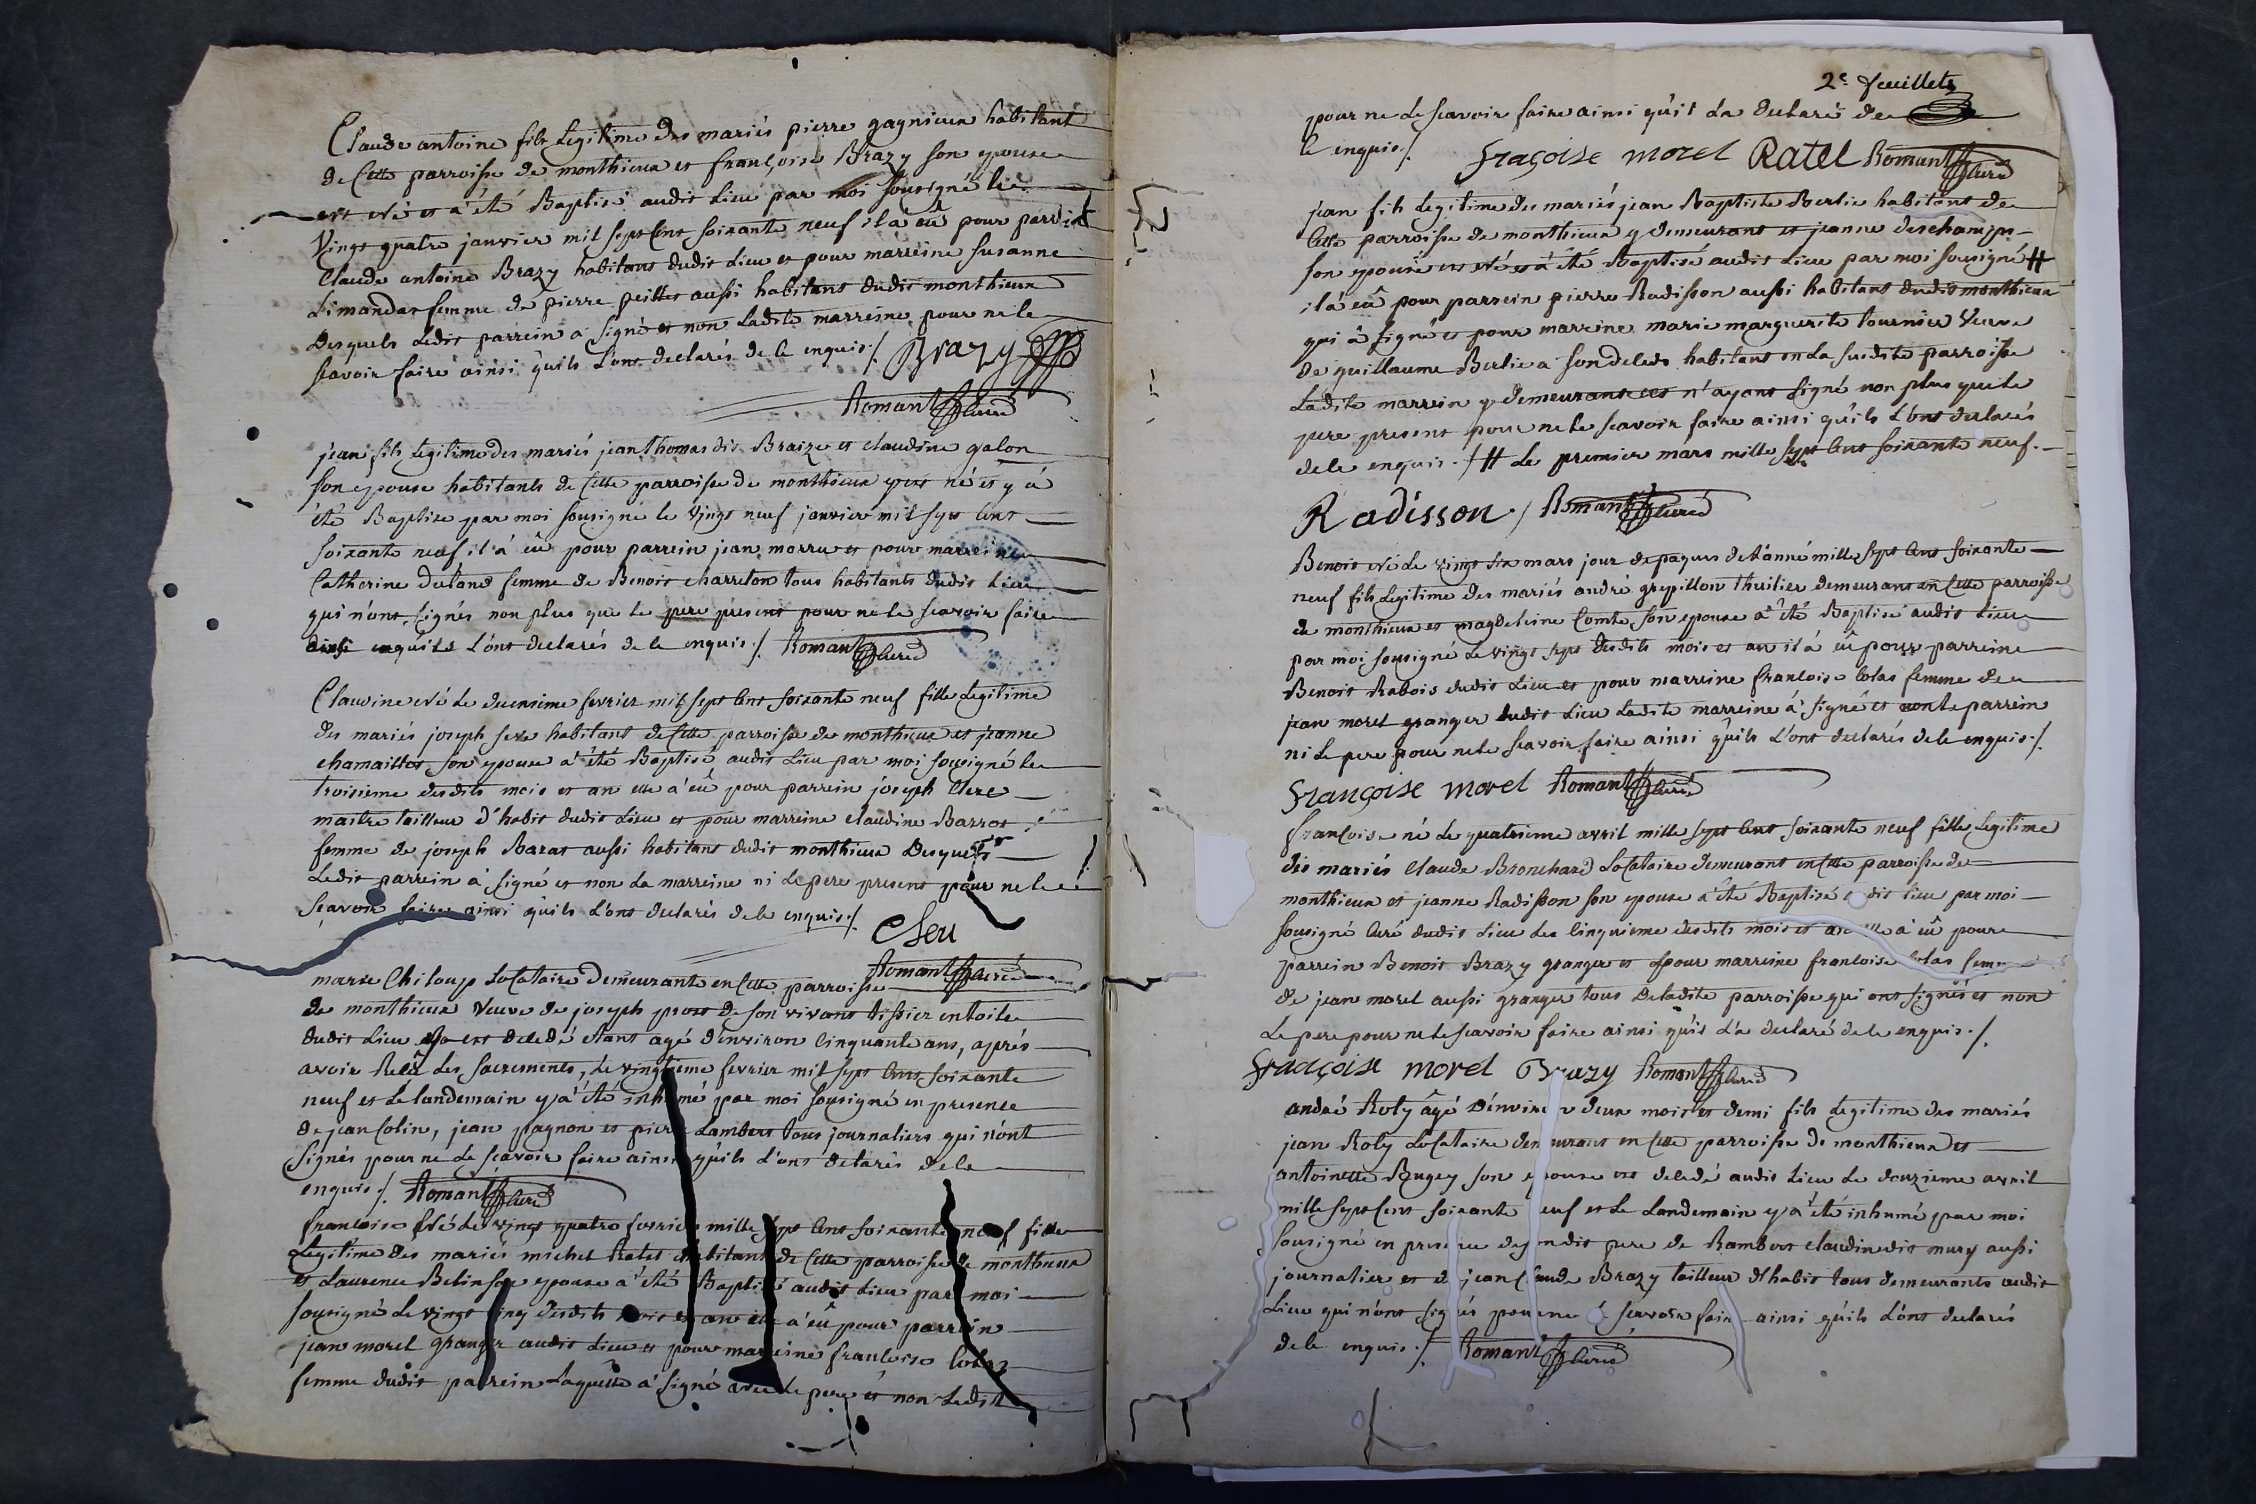 Claude antoine fils Legitime des mariés pierre gagnieux habitant
de Cette parroisse de monthieux et françoise Brazy son epouse
est né et a été Baptisé audit Lieu par moi sousigné le
Vingt quatre janvier mil sept Cent soixante neuf il a eû pour parrein
Claude antoine Brazy habitant dudit Lieu et pour marreine susanne
Limandas femme de pierre peillet aussi habitant dudit monthieux
Desquels Ledit parrein a signé et non Ladite marreine pour ne le
scavoir faire ainsi qu'ils L'ont declarés de le enquis ./. Brazy
Romant Curé
jean fils Legitime des mariés jean thomas dit Braize et claudine galon
son epouse habitants de Cette parroisse de monthieux y est né et y a
été Baptise par moi sousigné le Vingt neuf janvier mil sept Cent
soixante neuf il a eû pour parrein jean morru et pour marreine
Catherine dutand femme de Benoit charreton tous habitants dudit Lieu
qui n'ont signés non plus que le pere présent pour ne le scavoir faire
ainsi qu'ils L'ont declarés de le enquis ./. Romant Curé
Claudine né Le deuxieme fevrier mil sept Cent soixante neuf fille Legitime
des mariés joseph habitant de Cette parroisse de monthieux et jeanne
chamaillet son epouse a été Baptisé audit Lieu par moi sousigné le
troisieme desdits mois et an elle a eû pour parrein joseph
maitre tailleur d'habit dudit Lieu et pour marreine claudine Barrot
femme de joseph Barat aussi habitant dudit monthieux Desquels
Ledit parrein a signé et non La marreine ni Le pere present pour ne le
scavoir faire ainsi qu'ils L'ont declarés de le enquis ./.
Romant Curé
marie Chiloup Locataire Demeurante en Cette parroisse
de monthieux Veuve de joseph prost de son vivant tissier en toile
dudit Lieu est decedé etant agé d'environ Cinquante ans, après
avoir Reçû Les sacrements, Le vingtieme fevrier mil sept Cent soixante
neuf et Le landemain y a été inhumé par moi sousigné en presence
de jean Colin, jean pagnon et pierre Lambert tous journaliers qui n'ont
signés pour ne Le scavoir faire ainsi qu'ils L'ont declarés de le
enquis ./. Romant Curé
francoise Né Le vingt quatre fevrier mille sept Cent soixante neuf fille
Legitime des mariés michel Ratel habitant de Cette parroisse de monthieux
et Laurence Belin son epouse a été Baptisé audit Lieu par moi
sousigné Le vingt Cinq desdits mois et an elle a eû pour parrein
jean morel granger audit Lieu et pour marreine francoise Colas
femme dudit parrein Laquelle a signé avec Le pere et non Ledit
2e feuillets
pour ne Le scavoir faire ainsi qu'il L'a declaré de
le enquis ./. Fraçoise morel Ratel Romant Curé
jean fils Legitime des mariés jean Baptiste Berlie habitant de
Cette parroisse de monthieux y demeurant et jeanne deschamps
son epouse est né et a été Baptisé audit Lieu par moi sousigné #
il a eû pour parrein pierre Radisson aussi habitant dudit monthieux
qui a signé et pour marreine marie marguerite tournier Veuve
de guillaume Berlie a son deceds habitant en La susdite parroisse
Ladite marrein y demeurant n'ayant signé non plus que le
pere present pour ne le scavoir faire ainsi qu'ils L'ont declarés
de le enquis ./ # Le premier mars mille sept Cent soixante neuf.
Radisson ./ Romant Curé
Benoit né Le vingt six mars jour de paques de L'année mille sept Cent soixante
neuf fils Legitime des mariés andré greppillon thuilier demeurant en Cette parroisse
de monthieux et magdeleine Comte son epouse a été Baptisé audit Lieu
par moi sousigné Le vingt sept desdits mois et an il a eû pour parreine
Benoit Rabois dudit Lieu et pour marreine francoise Colas femme de
jean morel granger dudit Lieu Ladite marreine a signé et non le parrein
ni Le pere pour ne le scavoir faire ainsi qu'ils L'ont declarés de le enquis ./.
Françoise morel Romant Curé
francoise né Le quatrieme avril mille sept Cent soixante neuf fille Legitime
des mariés Claude Bronchard Locataire demeurant en Cette parroisse de
monthieux et jeanne Radisson son epouse a été Baptisé dit Lieu par moi
sousigné Curé dudit Lieu Le Cinquieme desdits mois et an elle a eû pour
parrein Benoit Brazy granger et pour marreine francoise Colas femme
de jean morel aussi granger tous de Ladite parroisse qui ont signés et non
Le pere pour ne le scavoir faire ainsi qu'il L'a declaré de le enquis ./.
Fraaçoise morel Brazy Romant Curé
andré Roly âgé d'environ deux mois et demi fils Legitime des mariés
jean Roly Locataire demeurant en Cette parroisse de monthieux et
antoinette Bugey son epouse est decedé audit Lieu Le douzieme avril
mille sept Cent soixante neuf et Le Landemain y a été inhumé par moi
sousigné en presence dudit pere de Rambert claudin dit mury aussi
journalier et de jean Claude Brazy tailleur d'habit tous demeurants audit
Lieu qui n'ont signés pour ne scavoir faire ainsi qu'ils L'ont declarés
de le enquis ./. Romant Curé